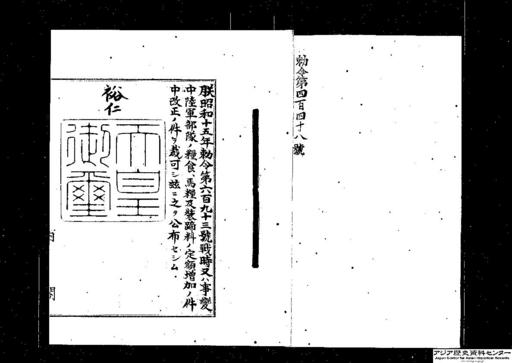 勅令第四百四十八號
朕昭和十五年勅令第六百九十三號戰時又ハ事變
中陸軍部隊ノ糧食、馬糧及裝蹄料ノ定額增加ノ件
中改正ノ件ヲ裁可シ玆ニ之ヲ公布セシム
裕仁
天皇
御璽
內閣
アジア歴史資料センター
Japan Center for Asian Historical Records